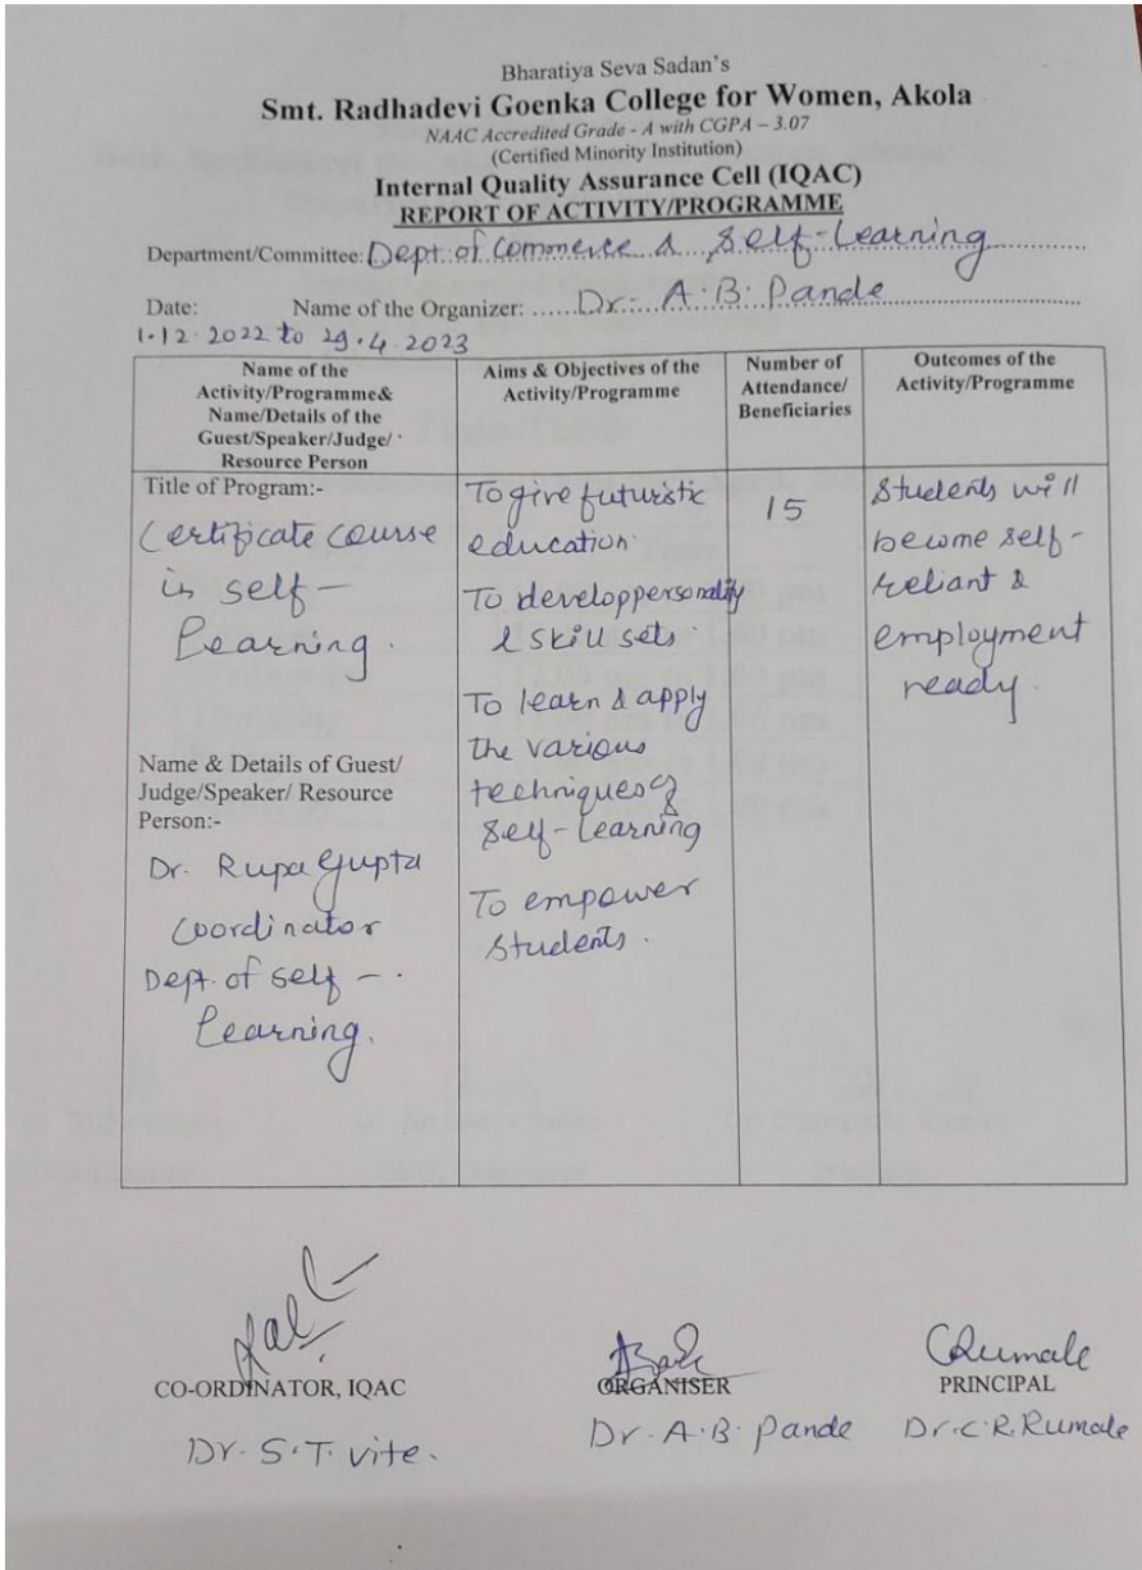 Bharatiya Seva Sadan's
Smt. Radhadevi Goenka College for Women, Akola
NAAC Accredited Grade - A with CGPA – 3.07
(Certified Minority Institution)
Internal Quality Assurance Cell (IQAC)
REPORT OF ACTIVITY/PROGRAMME
Department/Committee: Dept. of Commerce & Self-Learning
Date: Name of the Organizer: Dr. A.B. Pande
1.12.2022 to 29.4.2023
Name of the
Activity/Programme&
Name/Details of the
Guest/Speaker/Judge/
Resource Person
Aims & Objectives of the
Activity/Programme
Number of
Attendance/
Beneficiaries
Outcomes of the
Activity/Programme
Title of Program:-
Certificate Course
in self-
Learning.
Name & Details of Guest/
Judge/Speaker/ Resource
Person:-
Dr. Rupa Gupta
Coordinator
Dept. of self -
Learning.
To give futuristic
education.
To develop personality
& skill sets.
To learn & apply
the various
techniques of
Self-Learning
To empower
students.
15
Students will
become self-
reliant &
employment
ready.
CO-ORDINATOR, IQAC
Dr. S.T. Vite.
ORGANISER
Dr. A.B. Pande
CRumale
PRINCIPAL
Dr. C.R. Rumale